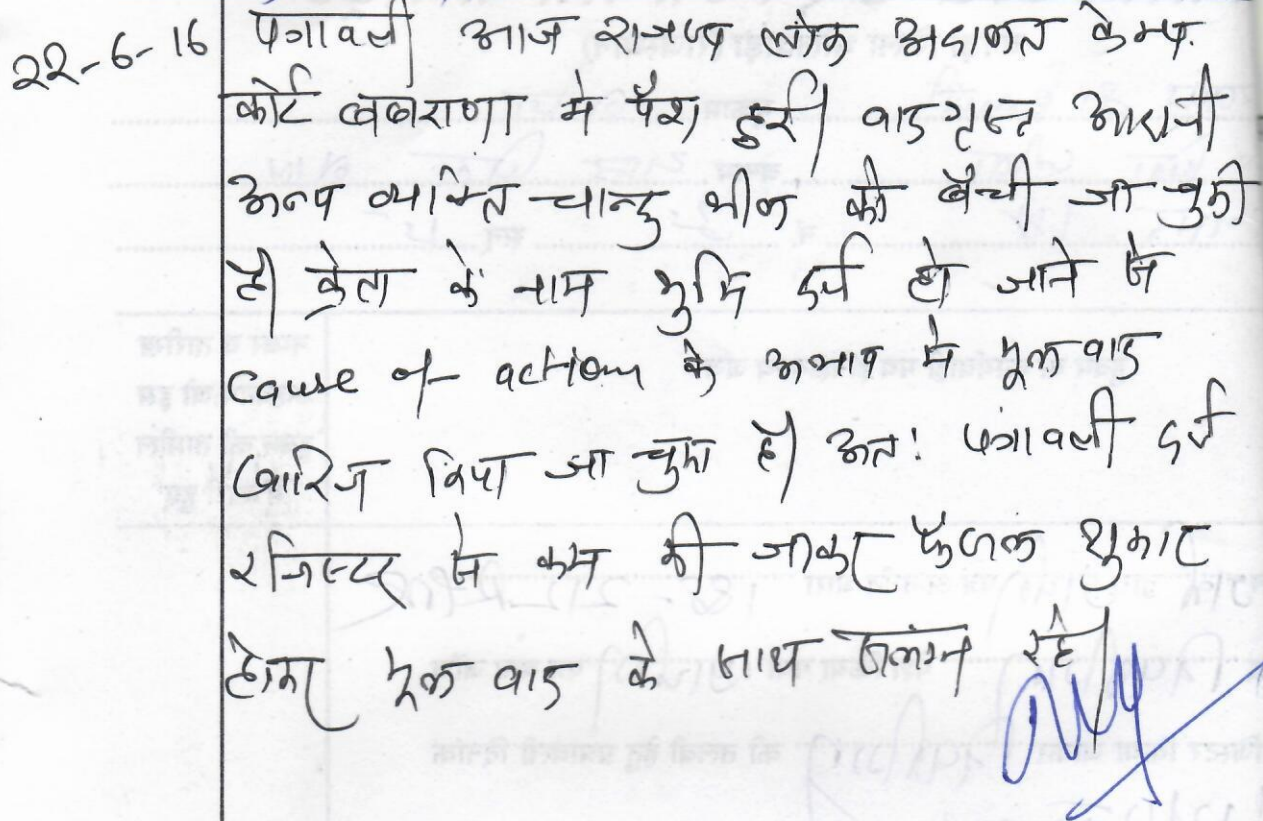 22-6-16 पत्रावली आज राजस्व लोक अदालत केम्प
कोर्ट खबराणा मे पेश हुई। वाद ग्रस्त आराजी
अन्य व्यक्ति चान्दु भील को बेची जा चुकी
है। क्रेता के नाम भुमि दर्ज हो जाने से
cause of action के अभाव मे मूल वाद
खारिज किया जा चुका है। अतः पत्रावली दर्ज
रजिस्टर से कम की जाकर फैसल शुमार
होकर मूल वाद के साथ संलग्न रहे।